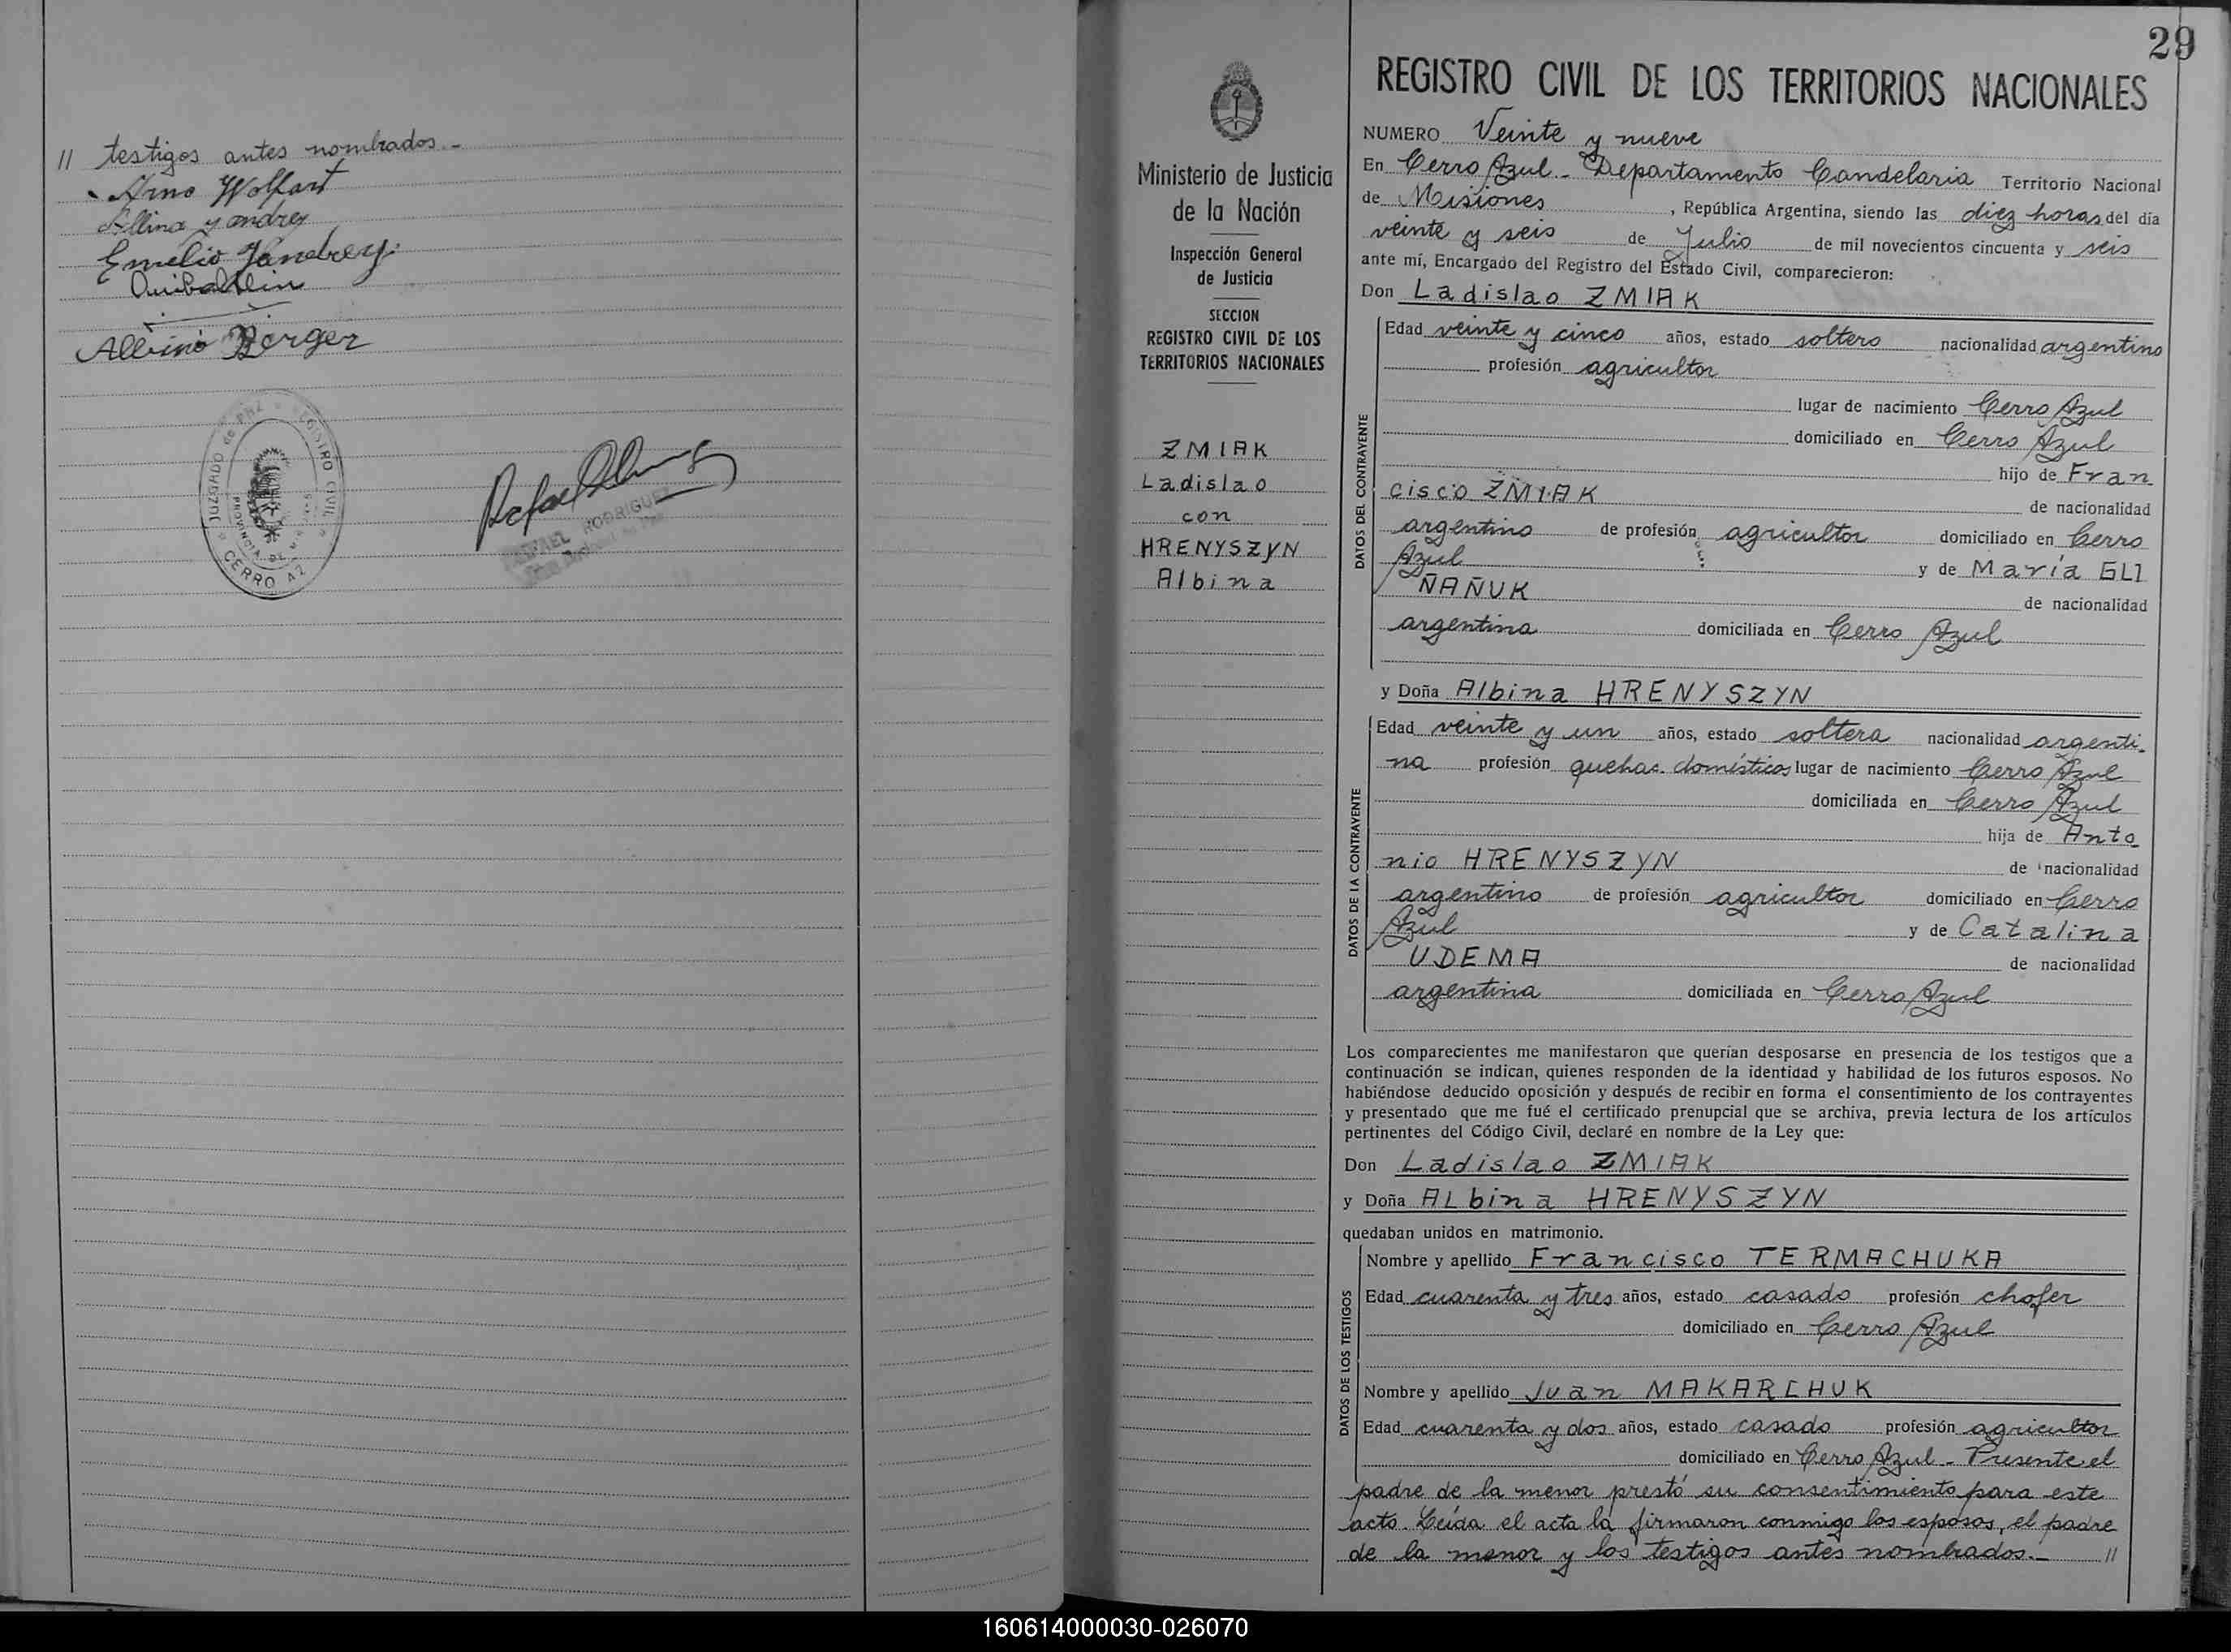 // testigos antes nombrados.-
Arno Wolfart
Albino Berger
JUZGADO de PAZ
REGISTRO CIVIL
PROVINCIA DE
CERRO AZ
RAFAEL RODRIGUEZ
29
REGISTRO CIVIL DE LOS TERRITORIOS NACIONALES
Ministerio de Justicia
de la Nación
Inspección General
de Justicia
SECCION
REGISTRO CIVIL DE LOS
TERRITORIOS NACIONALES
ZMIAK
Ladislao
con
HRENYSZYN
Albina
NUMERO Veinte y nueve
En Cerro Azul - Departamento Candelaria Territorio Nacional
de Misiones, República Argentina, siendo las diez horas del día
veinte y seis de Julio de mil novecientos cincuenta y seis
ante mí, Encargado del Registro del Estado Civil, comparecieron:
Don Ladislao ZMIAK
DATOS DEL CONTRAYENTE
Edad veinte y cinco años, estado soltero nacionalidad argentino
profesión agricultor
lugar de nacimiento Cerro Azul
domiciliado en Cerro Azul
hijo de Fran
cisco ZMIAK de nacionalidad
argentino de profesión agricultor domiciliado en Cerro
Azul y de María GLI
ÑAÑUK de nacionalidad
argentina domiciliada en Cerro Azul
y Doña Albina HRENYSZYN
DATOS DE LA CONTRAYENTE
Edad veinte y un años, estado soltera nacionalidad argenti-
na profesión quehac. domésticos lugar de nacimiento Cerro Azul
domiciliada en Cerro Azul
hija de Anto
nio HRENYSZYN de nacionalidad
argentino de profesión agricultor domiciliado en Cerro
Azul y de Catalina
UDEMA de nacionalidad
argentina domiciliada en Cerro Azul
Los comparecientes me manifestaron que querían desposarse en presencia de los testigos que a
continuación se indican, quienes responden de la identidad y habilidad de los futuros esposos. No
habiéndose deducido oposición y después de recibir en forma el consentimiento de los contrayentes
y presentado que me fué el certificado prenupcial que se archiva, previa lectura de los artículos
pertinentes del Código Civil, declaré en nombre de la Ley que:
Don Ladislao ZMIAK
y Doña ALbina HRENYSZYN
quedaban unidos en matrimonio.
DATOS DE LOS TESTIGOS
Nombre y apellido Francisco TERMACHUKA
Edad cuarenta y tres años, estado casado profesión chofer
domiciliado en Cerro Azul
Nombre y apellido Juan MAKARCHUK
Edad cuarenta y dos años, estado casado profesión agricultor
domiciliado en Cerro Azul - Presente el
padre de la menor prestó su consentimiento para este
acto. Leída el acta la firmaron conmigo los esposos, el padre
de la menor y los testigos antes nombrados.- //
160614000030-026070